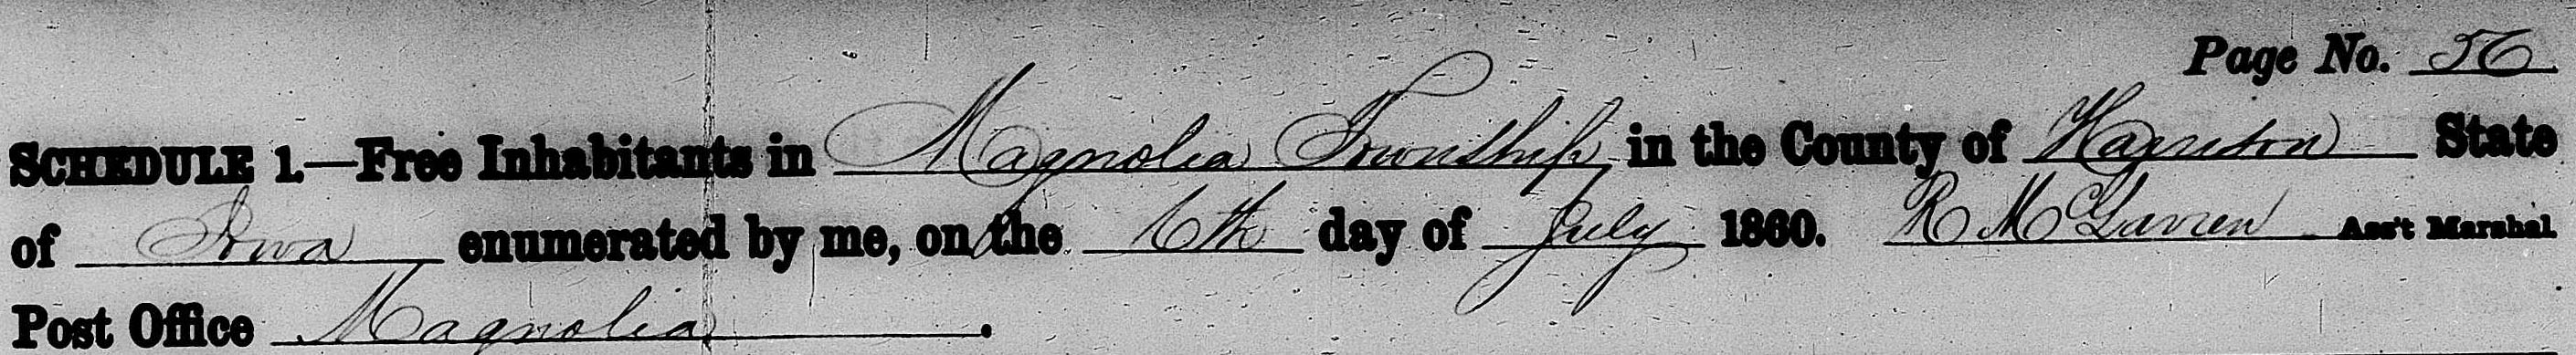 Page No. 56
SCHEDULE 1.—Free Inhabitants in Magnolia Township in the County of Harrison State
of Iowa enumerated by me, on the 6th day of July 1860. R McGavren Ass't Marshal.
Post Office Magnolia.